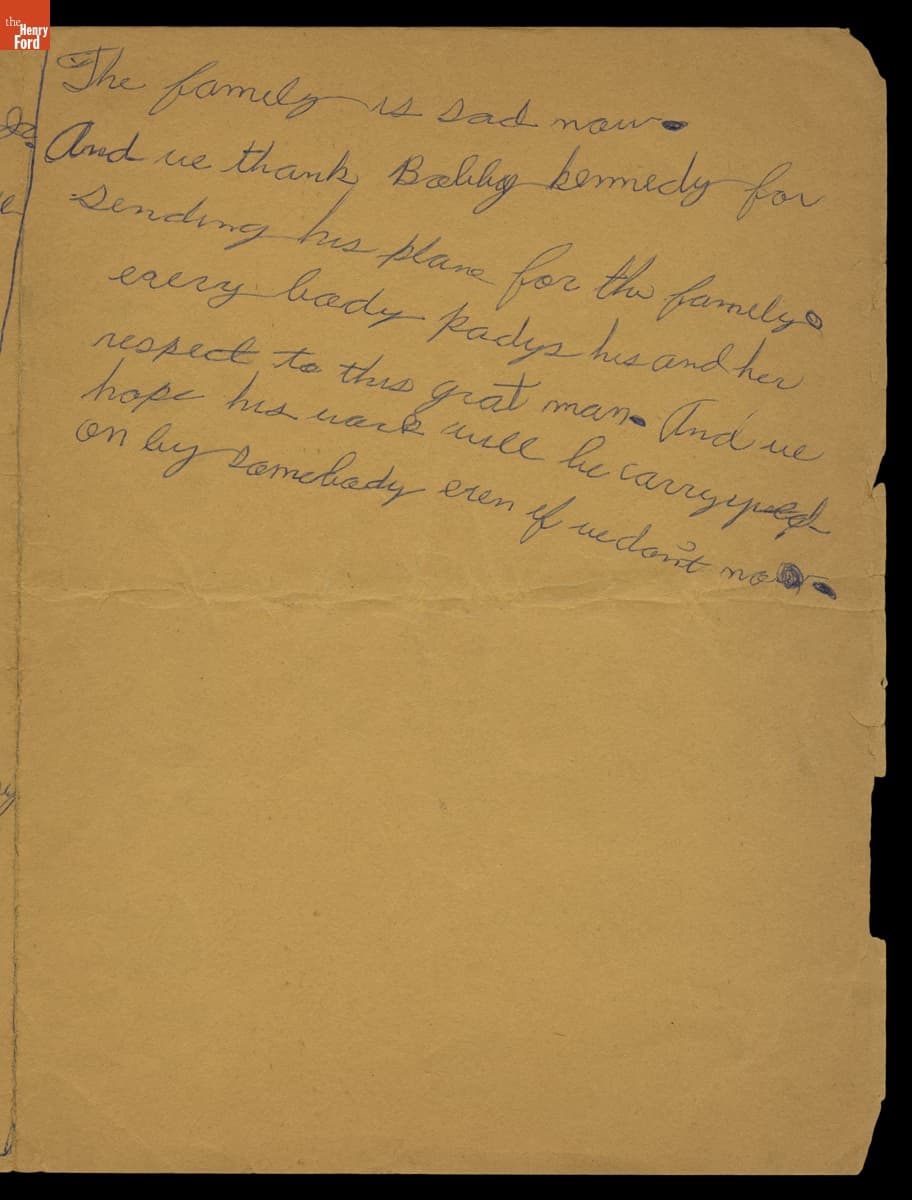 the
Henry
Ford
The family is sad now.
And we thank Bobby kennedy for
sending his plane for the family.
every body padys his and her
respect to this grat man. And we
hope his work will be carryyed
on by somebody even if we don't now.